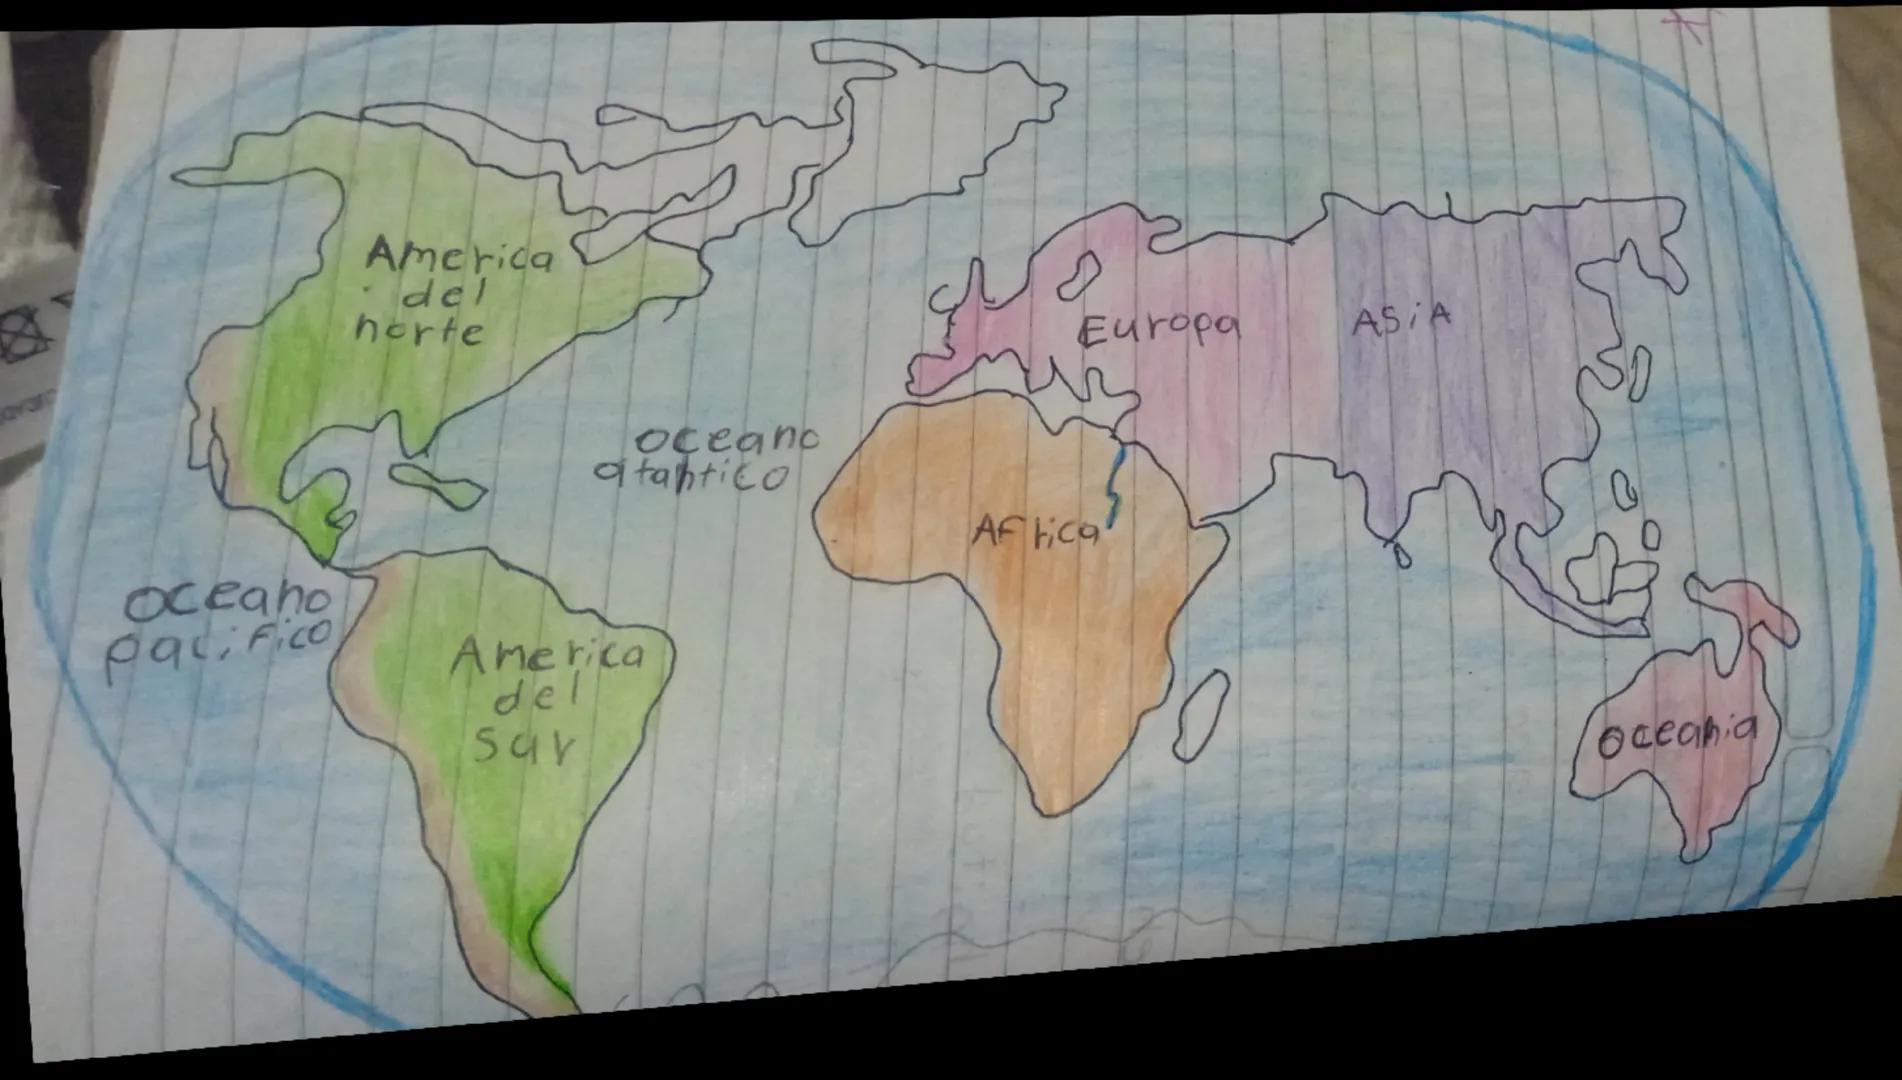 America
del
norte
Europa
ASiA
oceano
atantico
AFrica
oceano
pacifico
America
del
sur
oceania